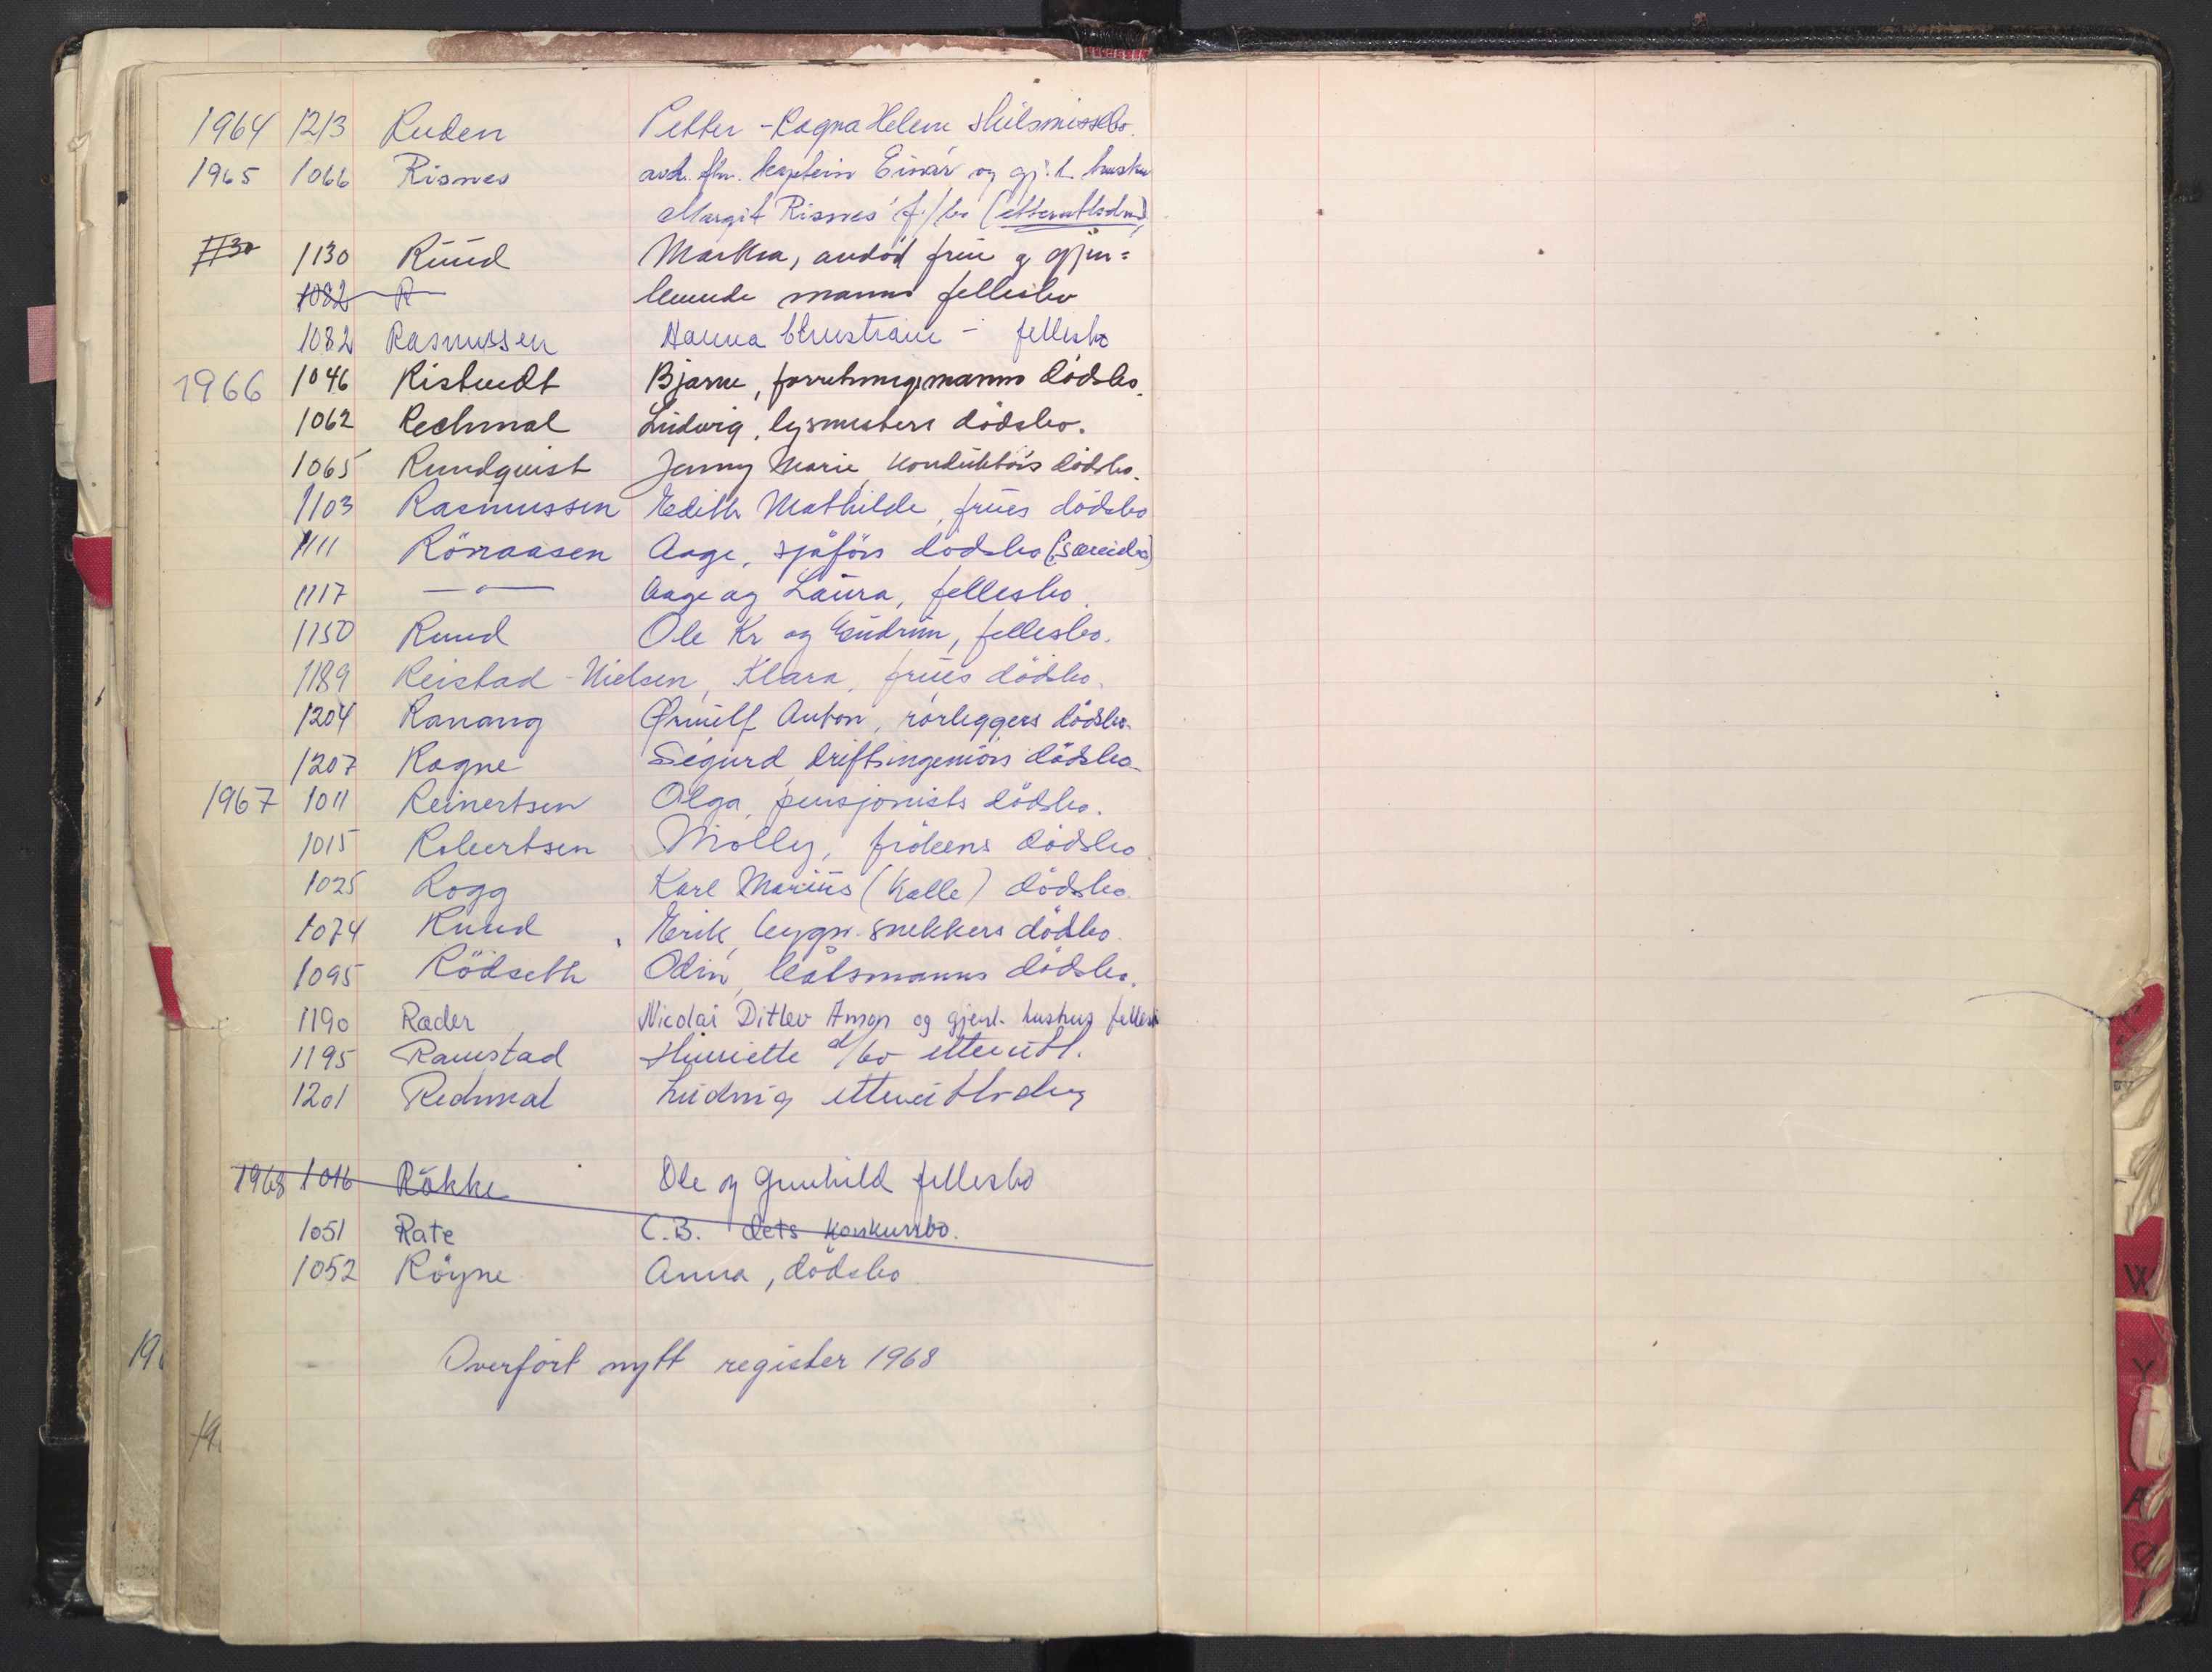 1964 1213 Ruden Petter - Ragna Helene skilsmissebo.
1965 1066 Risnes avd. fhv. kaptein Einar og gj.l. hustru
Margit Risnes' f./bo (etterutlodn)
1130 1130 Ruud Martha, avdöd frue og gjen=
1082 R levende manns fellesbo
1082 Rasmussen Hanna Christiane - fellesbo
1966 1046 Ristvedt Bjarne, forretningsmanns dödsbo.
1062 Rechnal Ludwig, lysmesters dödsbo.
1065 Rundquist Jenny Marie, konduktörs dödsbo.
1103 Rasmussen Edith Mathilde, frues dödsbo
1111 Rönaasen Aage, sjåförs dödsbo (særeiebo)
1117 — " — Aage og Laura, fellesbo.
1150 Ruud Ole Kr og Gudrun, fellesbo.
1189 Reistad-Nielsen, Klara, frues dödsbo.
1204 Ranang Ørnulf Anton, rörleggers dödsbo.
1207 Rogne Sigurd, driftsingeniörs dödsbo.
1967 1011 Reinertsen Olga, pensjonists dödsbo.
1015 Robertsen Molly, frökens dödsbo.
1025 Rogg Karl Marius (Kalle) dödsbo.
1074 Ruud Erik, bygn. snekkers dödsbo.
1095 Rödseth Odin, båtsmanns dödsbo.
1190 Rader Nicolai Ditlev Amon og gjenl. hustrus fellesbo
1195 Ramstad Henriette d/bo etterutl.
1201 Rechnal Ludvig etterutlodng
1968 1016 Rökke Ole og Gunhild fellesbo
1051 Rate C.B. dets konkursbo.
1052 Röyne Anna, dödsbo
Overfört nytt register 1968
196
19
W
Y
Ø